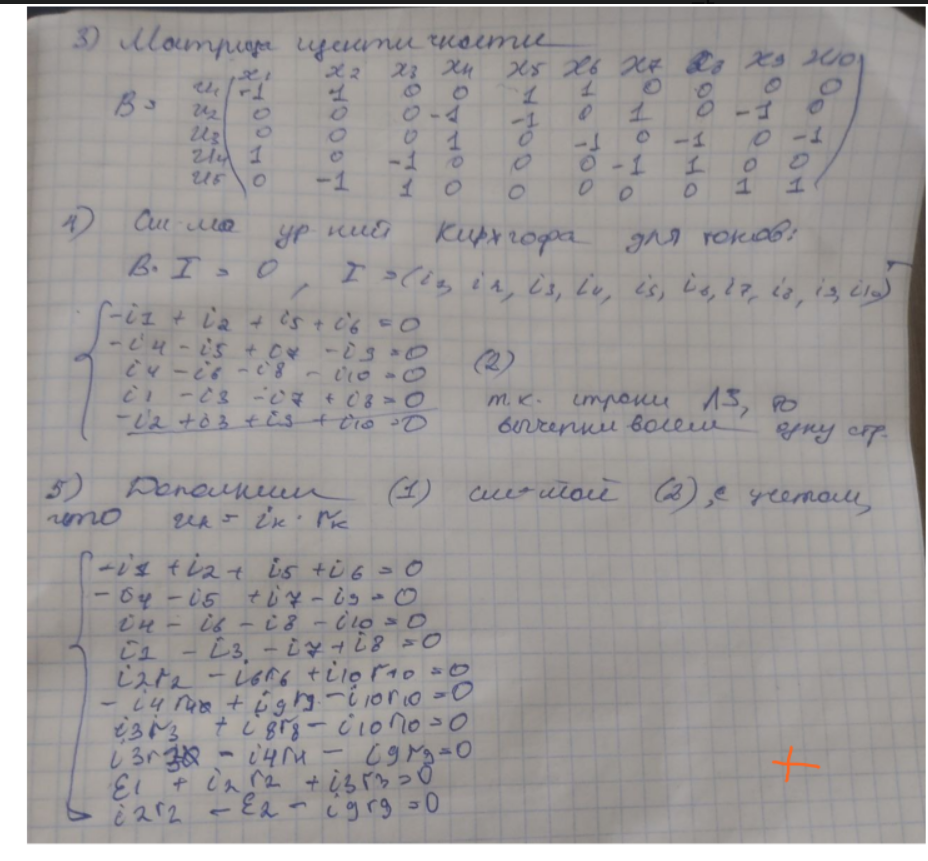 3) Матрица инцидентности
x1 x2 x3 x4 x5 x6 x7 x8 x9 x10
B = u1 -1 1 0 0 1 1 0 0 0 0
u2 0 0 0 -1 -1 0 1 0 -1 0
u3 0 0 0 1 0 -1 0 -1 0 -1
u4 1 0 -1 0 0 0 -1 1 0 0
u5 0 -1 1 0 0 0 0 0 1 1
4) Сис-ма ур-ний Кирхгофа для токов:
B · I = 0, I = (i1, i2, i3, i4, i5, i6, i7, i8, i9, i10)ᵀ
-i1 + i2 + i5 + i6 = 0
-i4 - i5 + i7 - i9 = 0
i4 - i6 - i8 - i10 = 0 (2)
i1 - i3 - i7 + i8 = 0 т.к. строки ЛЗ, то
-i2 + i3 + i9 + i10 = 0 вычеркиваем одну стр.
5) Дополним (1) сис-мой (2), с учетом,
что uк = iк · rк
-i1 + i2 + i5 + i6 = 0
-i4 - i5 + i7 - i9 = 0
i4 - i6 - i8 - i10 = 0
i1 - i3 - i7 + i8 = 0
i2r2 - i6r6 + i10r10 = 0
- i4r4 + i9r9 - i10r10 = 0
i3r3 + i8r8 - i10r10 = 0
i3r3 - i4r4 - i9r9 = 0
ε1 + i2r2 + i3r3 = 0
i2r2 - ε2 - i9r9 = 0